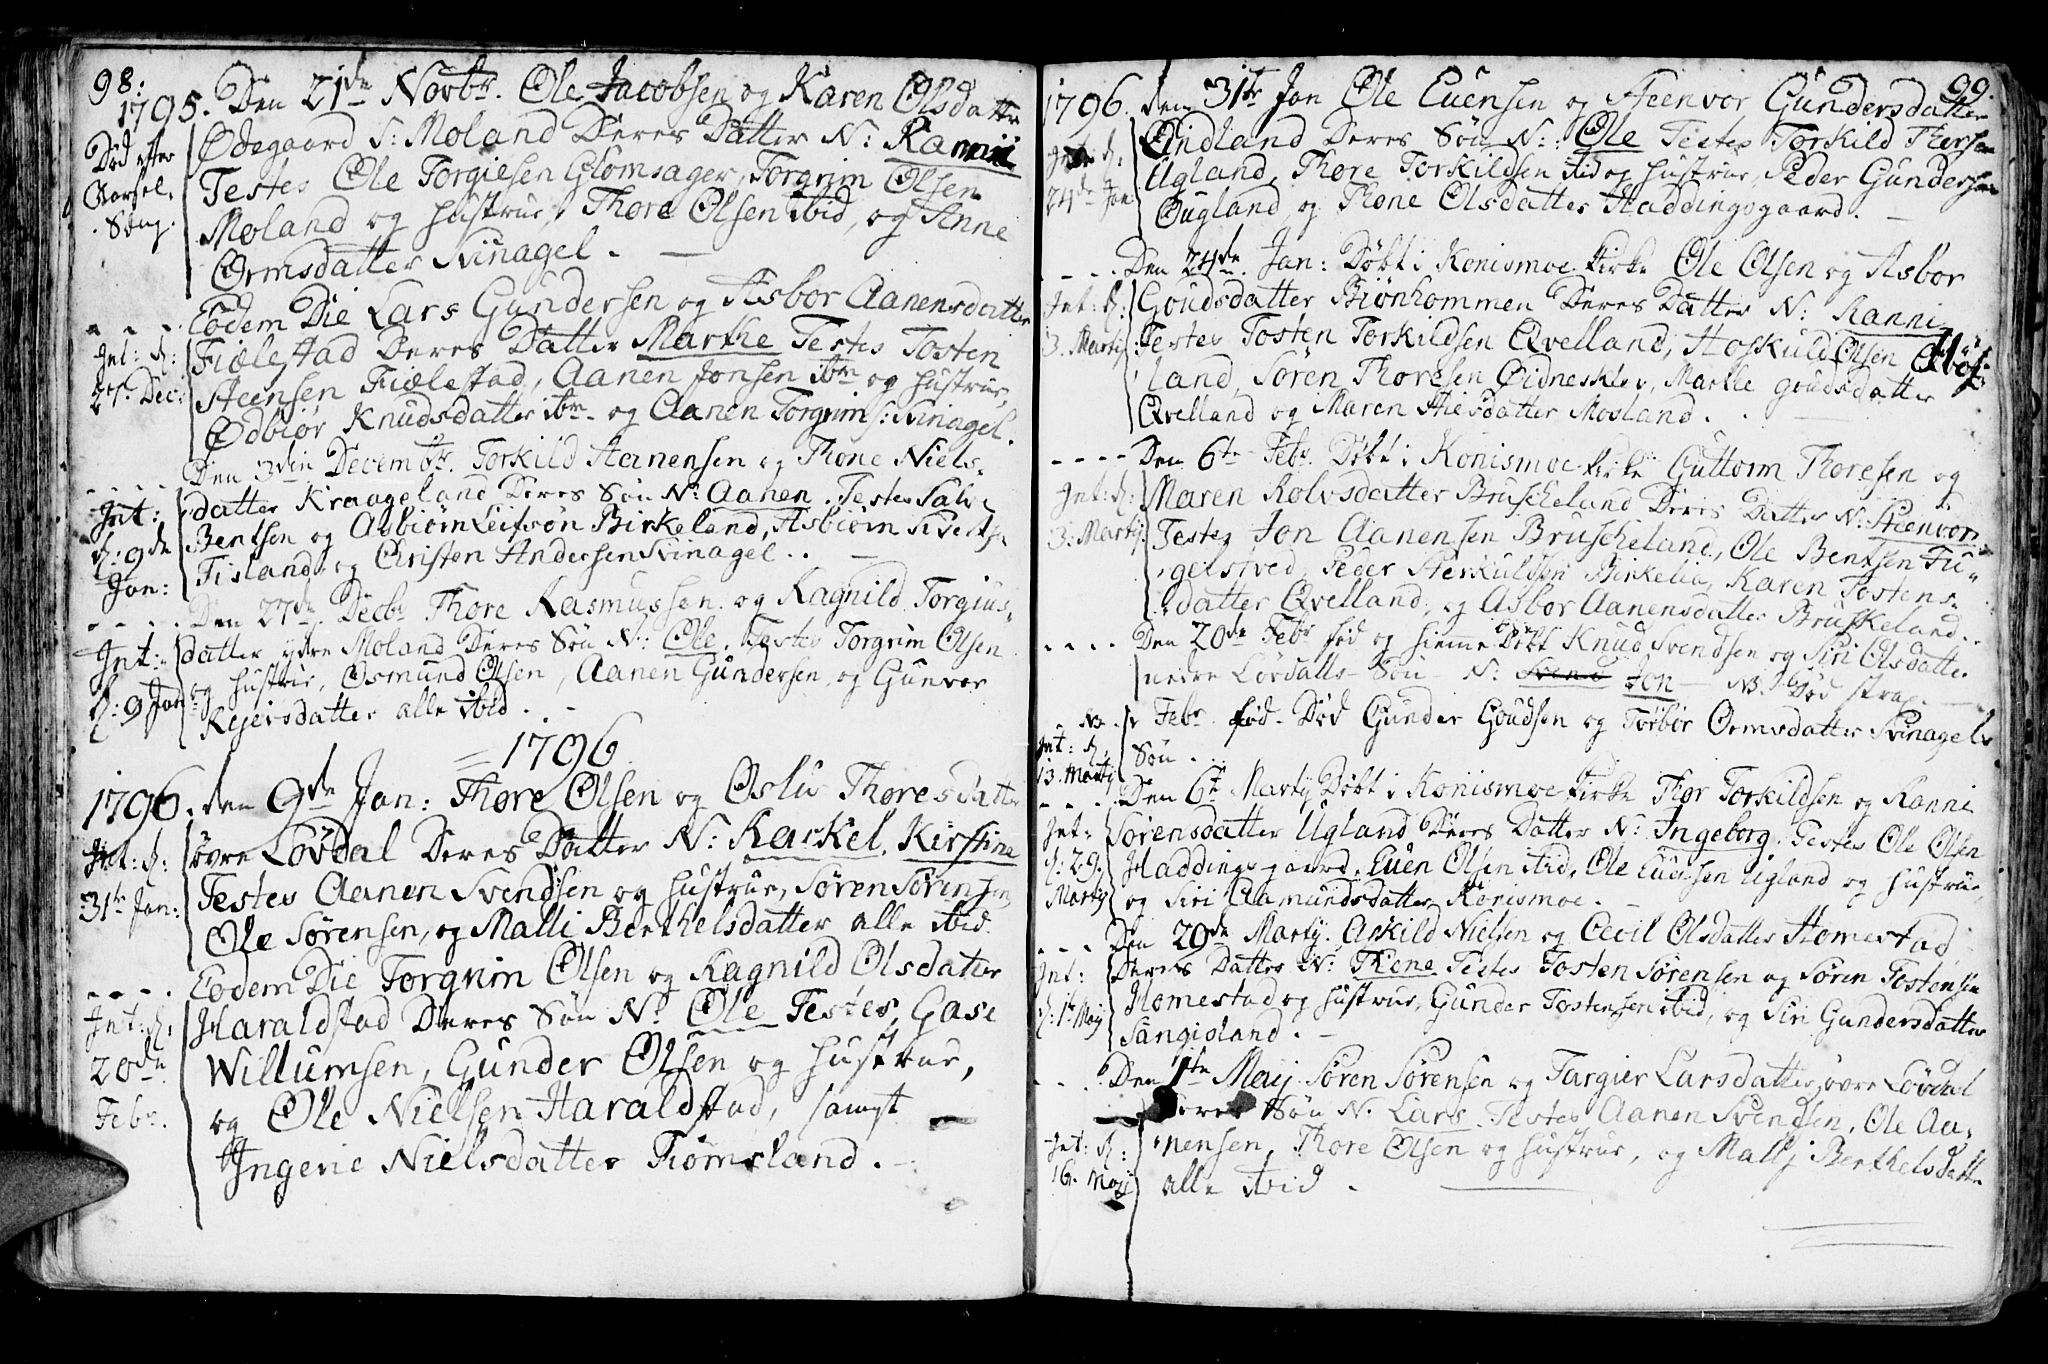 98.
1795. Den 21de Novbr. Ole Jacobsen og Karen Olsdatter
Ødegaard S: Moland Deres Datter N: Ranni
Død efter
Aarsel.
Seng.
Testes Ole Torgiesen Glomsager, Torgrim Olsen
Moland og Hustrue, Thore Olsen ibid, og Anne
Ormsdatter Svinagel.
Eodem Die Lars Gundersen og Asbor Aanensdatter
Fiælestad Deres Datter Marthe Testes Tosten
Int: d:
27. Dec:
Steensen Fiælestad, Aanen Jonsen ibm og Hustrue,
Ødbiør Knudsdatter ibm og Aanen Torgrims: Svinagel.
Den 3die Decembr. Torkild Aanensen og Thone Niels-
datter Kraageland Deres Søn N: Aanen. Testes Salve
Int:
d: 9de
Jan:
Bentsen og Asbiørn Leifsøn Birkeland, Asbiørn Sivertsen
Fisland og Christen Andersen Svinagel.
Den 27de Decbr Thore Rasmussen og Ragnild Torgius-
datter ydre Moland Deres Søn N: Ole. Testes Torgrim Olsen
Int:
d: 9 Jan:
og Hustrue, Osmund Olsen, Aanen Gundersen, og Gunvor
Rejersdatter alle ibid.
1796
1796. den 9de Jan: Thore Olsen og Oslu Thoresdatter
Int: d:
31te Jan:
øvre Løvdal Deres Datter N: Rackel, Kirstine
Testes Aanen Svendsen og Hustrue, Søren Sørensen,
Ole Sørensen, og Malli Berthelsdatter alle ibid.
Eodem Die Torgrim Olsen og Ragnild Olsdatter
Int: d:
20de
Febr.
Haraldstad Deres Søn N: Ole Testes, Gase
Willumsen, Gunder Olsen og Hustrue,
og Ole Nielsen Haraldstad, samt
Ingerie Nielsdatter Fiømsland.
99.
1796. den 31te Jan Ole Euensen og Steenvor Gundersdatter
Int: d:
24de Jan
Øindland Deres Søn N: Ole Testes Torkild Thorsen
Ugland, Thore Torkildsen ibid og Hustrue, Peder Gundersen
Ougland og Thone Olsdatter Haddingsgaard.
Den 24de Jan: Døbt i Konismoe Kirke Ole Olsen og Asbor
Int: d:
3. Martij
Goudsdatter Biønkommen Deres Datter N: Ranni
Testes Tosten Torkildsen Qvelland, Hoskuld Olsen
land, Søren Thoresen Øidnesklev, Marthe Goudsdatter
Qvelland og Maren Stiesdatter Mosland.
Den 6te Febr. Døbt i Konismoe Kirke Guttorm Thoresen og
Int: d:
3. Martij
Maren Rolvsdatter Bruskeland Deres Datter N: Steenvor
Testes Jon Aanensen Bruskeland, Ole Bentsen Fu-
gelstved, Peder Sterkuldsen Birkelia, Karen Tostens-
datter Qvelland, og Asbor Aanensdatter Bruskeland.
Den 20de Febr. fød og hiemme Døbt Knud Svendsen og Siri Olsdatter
nedre Løvdalls Søn N: Svend Jon NB. Død strax.
NB. Febr. fød. Død Gunder Goudsen og Torbor Ormsdatter Svinagels
Int: d.
13. Martij
Søn.
Den 6te Martij Døbt i Konismoe Kirke Thor Torkildsen og Ranni
Int:
d: 29.
Martij
Sørensdatter Ugland Deres Datter N: Ingeborg. Testes Ole Olsen
Haddingsgaard, Euen Olsen ibid, Ole Euensen Ugland og Hustrue,
og Siri Aamundsdatter Konismoe.
Den 29de Martij. Askild Nielsen og Cecil Olsdatter Homestad
Int:
d: 1te Maij
Deres Datter N: Thone Testes Tosten Sørensen og Søren Tostensen
Homestad og Hustrue, Gunder Tostensen ibid, og Siri Gundersdatter
Sangisland.
Den 1te Maij Søren Sørensen og Targier Larsdatter, øvre Løvdal
Deres Søn N. Lars. Testes Aanen Svendsen, Ole Aa-
Int: d:
16. Maij
nensen, Thore Olsen og Hustrue, og Mallj Berthelsdatter
alle ibid.